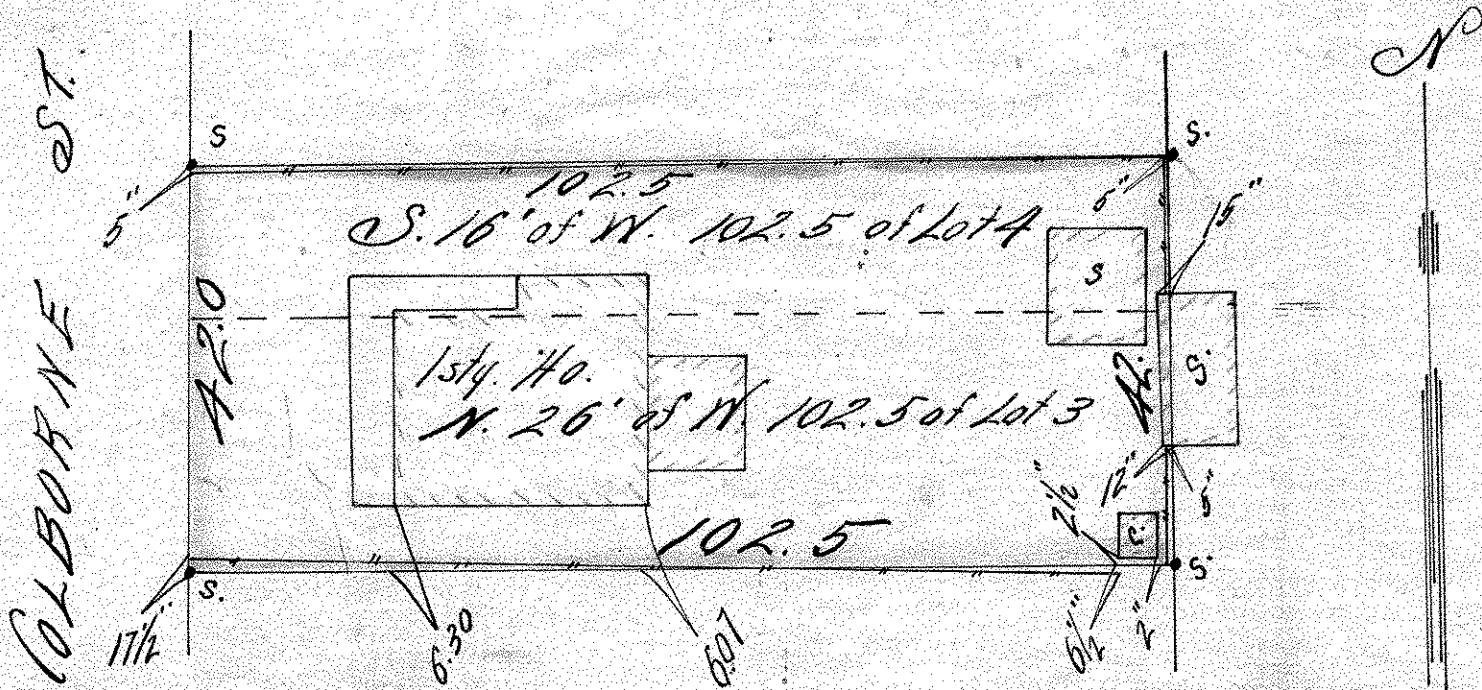 COLBORNE ST.
N
S
S.
5"
5"
15"
102.5
S. 16' of W. 102.5 of Lot 4
S
42.0
42.
S.
1 sty. Ho.
N. 26' of W. 102.5 of Lot 3
2½"
12"
5"
C.
102.5
S.
S.
17½"
6.30
6.07
6½"
2"